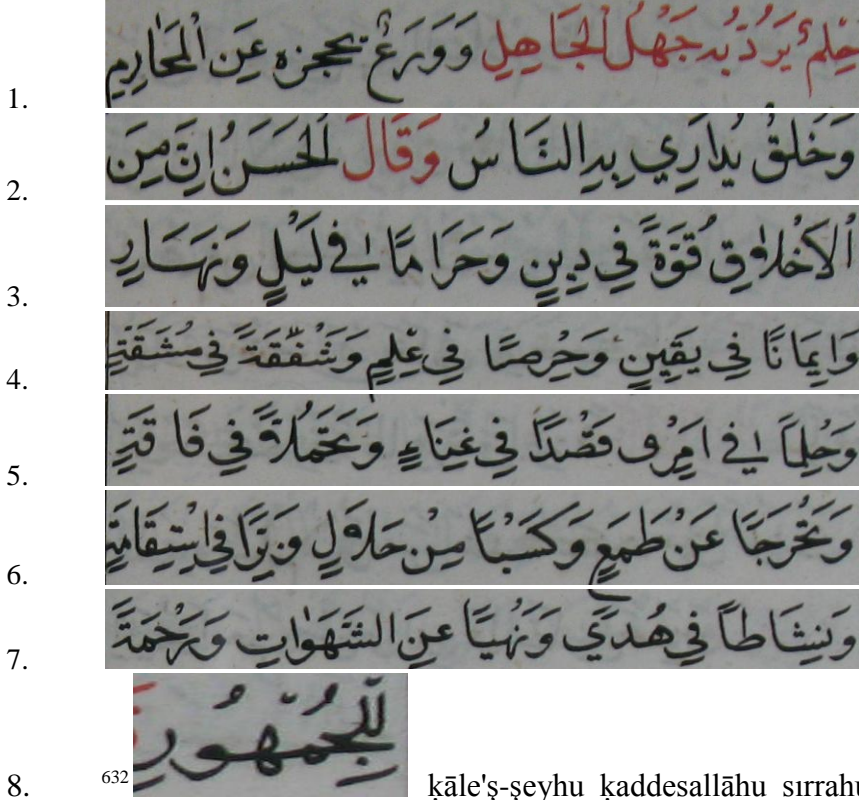 1. حِلمٌ يَرُدُّ بِهِ جَهْلَ الْجَاهِلِ وَوَرَعٌ يحجزه عَنِ الْمَحَارِمِ
2. وَخُلقٌ يُدَارِي بِهِ النَّاسُ وَقَالَ الْحَسَنُ اِنَّ مِنَ
3. اَلْاَخْلَاقِ قُوَّةً فِي دِينٍ وَحَزَامًا في لَيْلٍ وَنَهَارٍ
4. وَاِيمَانًا فِي يَقِينٍ وَحِرصًا فِي عِلْمٍ وَشَفَقَةً فِي مَشَقَّتِهِ
5. وَحِلمًا فِي قَصْدًا فِي غِنَاءٍ وَتَحَمُّلًا فِي فَاقَتِهِ
6. وَتَحَرُّجًا عَنْ طَمَعٍ وَكَسْبًا مِنْ حَلَالٍ وَبِرًّا فِي اِسْتِقَامَتِهِ
7. وَنِشَاطًا فِي هُدًي وَنَهْيًا عَنِ الشَّهَوَاتِ وَرَحْمَةً
8. لِلْجُمْهُورِ 632 ḳāle'ş-şeyhu ḳaddesallāhu sırrahu